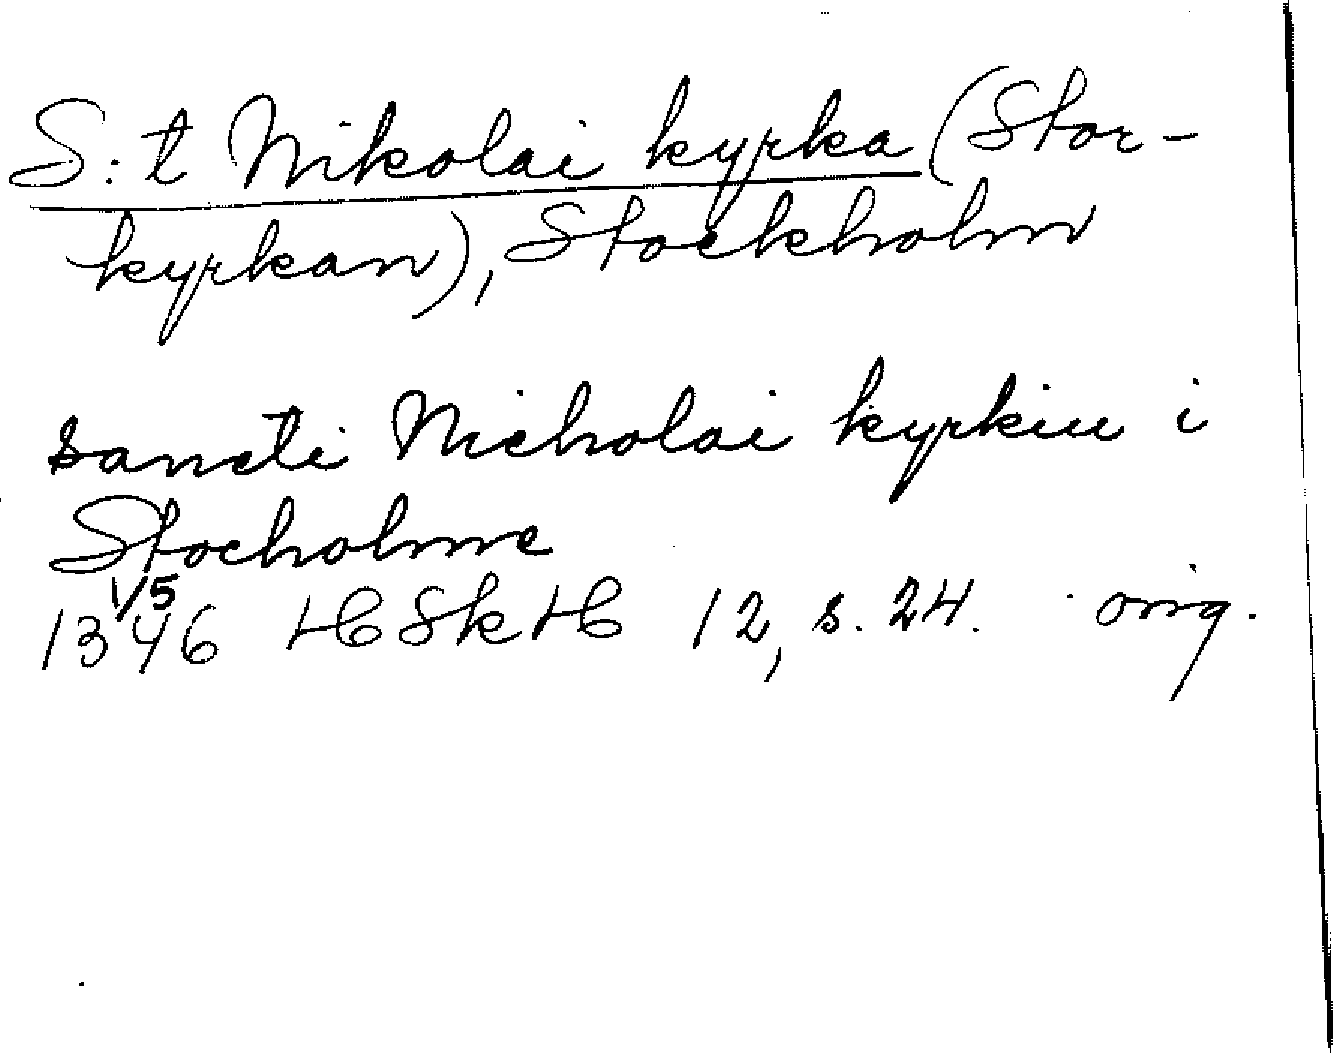 S:t Nikolai kyrka (Stor-
kyrkan), Stockholm
sancti Nicholai kyrkiu i
Stocholme
1/5
1346 HSkH 12, s. 24. orig.